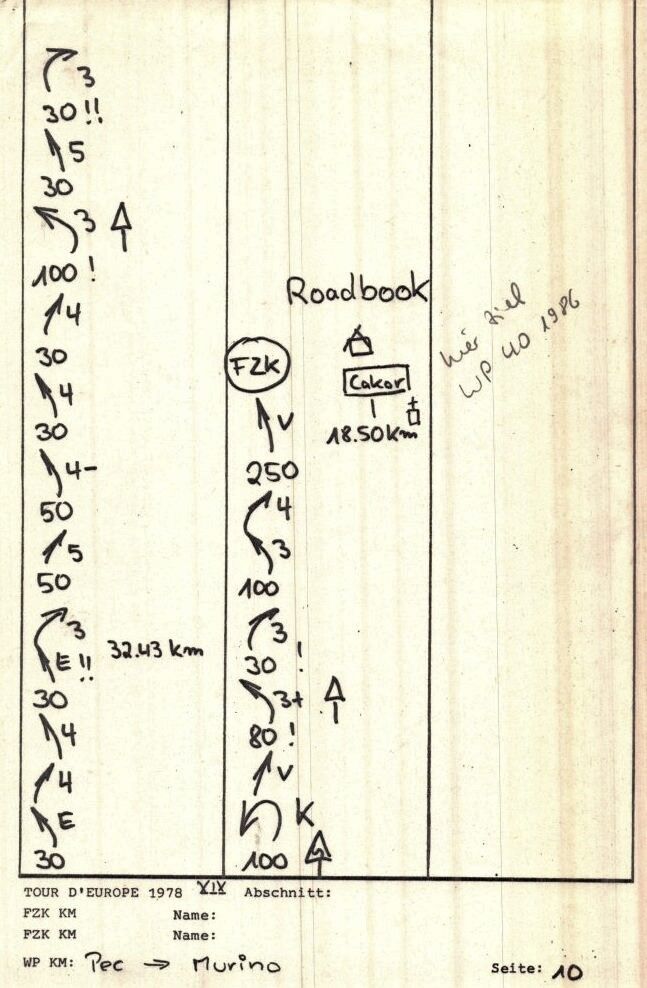 3
30 !!
5
30
3
100 !
4
30
4
30
4-
50
5
50
3
E !!
32.43 km
30
4
4
E
30
FZK
V
250
4
3
100
3
30 !
3+
80 !
V
K
100
Roadbook
Cakor
18.50 km
hier Ziel
WP 40 1986
TOUR D'EUROPE 1978 XIX Abschnitt:
FZK KM Name:
FZK KM Name:
WP KM: Pec → Murino
Seite: 10